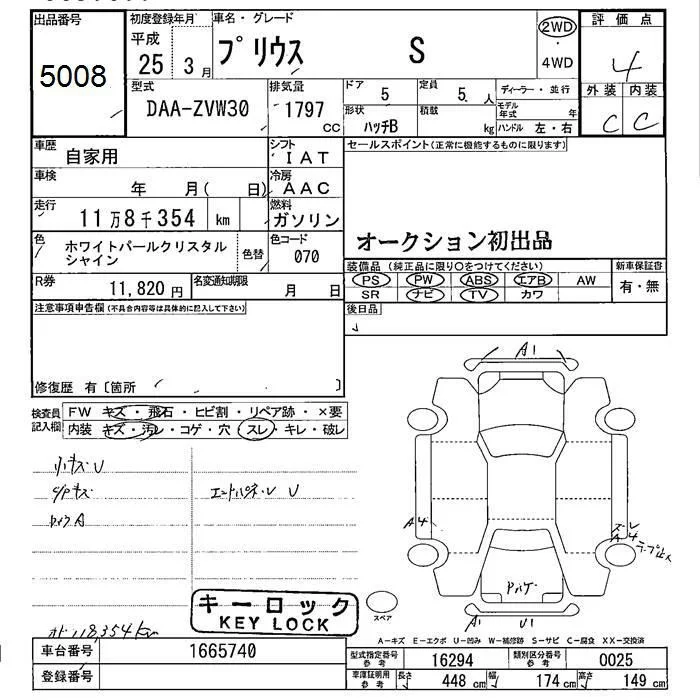 出品番号
5008
初度登録年月
平成
25 3月
車名・グレード
プリウス S
2WD
・
4WD
評価点
4
外装 内装
C C
型式
DAA-ZVW30
排気量
1797
CC
ドア
5
定員
5. 人
ディーラー・並行
モデル
年式 年
形状
ハッチB
積載
kg
ハンドル 左・右
車歴
自家用
シフト
IAT
セールスポイント(正常に機能するものに限ります)
車検
年 月( 日)
冷房
AAC
走行
11万8千354 km
燃料
ガソリン
オークション初出品
色
ホワイトパールクリスタル
シャイン
色替
色コード
070
装備品 (純正品に限り○をつけてください)
PS PW ABS エアB AW
SR ナビ TV カワ
新車保証書
有・無
R券
11,820 円
名変通知期限
月 日
後日品
注意事項申告欄(不具合内容等は具体的に記入して下さい)
修復歴 有〔箇所 〕
検査員
記入欄
FW キズ・飛石・ヒビ割・リペア跡・×要
内装 キズ・汚レ・コゲ・穴・スレ・キレ・破レ
小キズ U
A1
A4
A4
A1 U1
キーロック
KEY LOCK
スペア
118,354km
A-キズ E-エクボ U-凹み W-補修跡 S-サビ C-腐食 XX-交換済
車台番号
1665740
型式指定番号
参考
16294
類別区分番号
参考
0025
登録番号
車庫証明用
参考
長さ
448 cm
幅
174 cm
高さ
149 cm